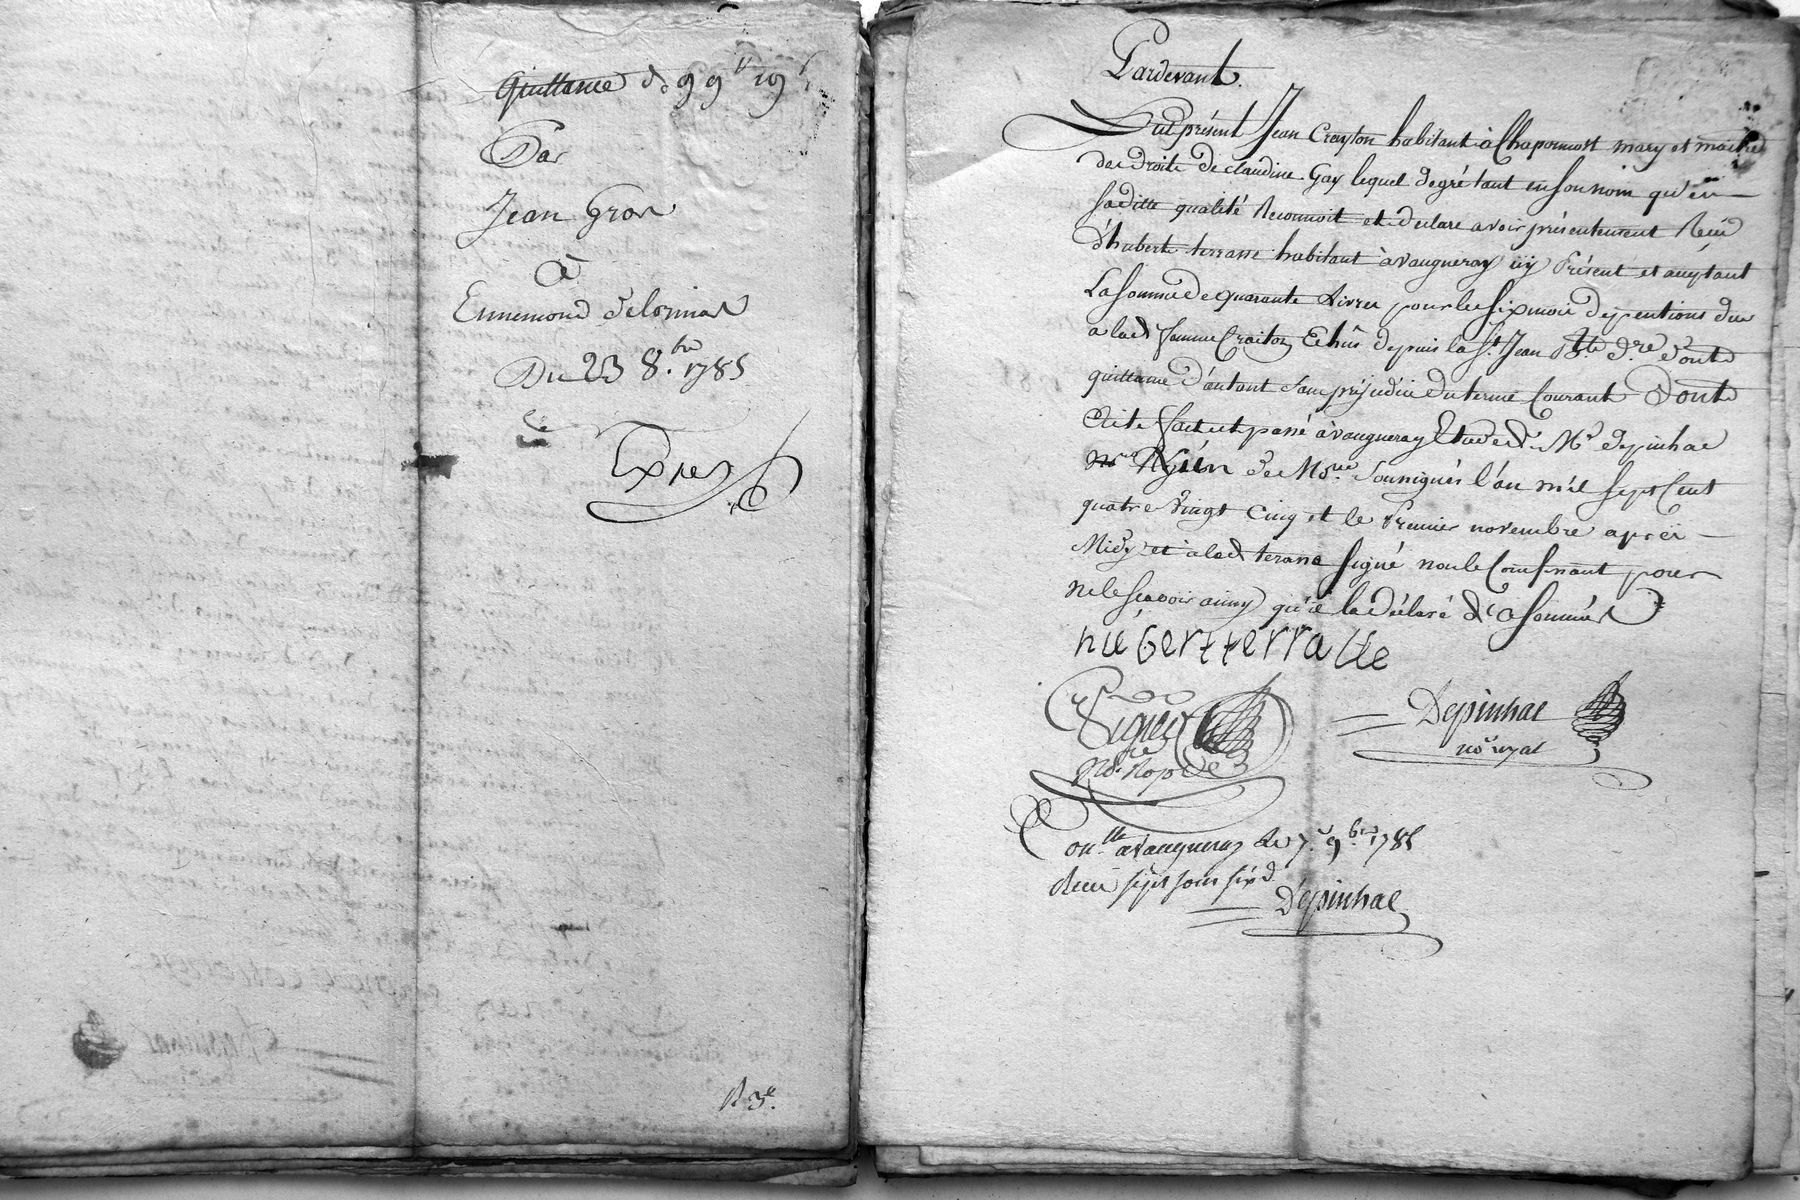 Quittance de 99ll 19s
Par
Jean Gros
à
Ennemond delorme
Du 23 8.bre 1785
Exple
R 3e.
Pardevant
fut présent Jean Crayton habitant à Chaponnost mary et maitre
des droits de claudine Gay lequel degré tant en son nom qu'en
saditte qualité Reconnoit et declare avoir présentement Reçû
d'hubert terrasse habitant à vaugneray icy Présent et aceptant
La somme de quarante Livres pour les six mois de pentions dus
a lad. femme Craiton Echûs depuis la St. Jean Bte. dre. dont
quittance d'autant sans préjudice du terme Courant Dont
Acte fait et passé à vaugneray Etude de Me depinhac
l'un de Nous. soussignés l'an mil sept Cent
quatre vingt cinq et le Premier novembre après
Midy et à led terasse signé non le Confessant pour
ne le sçavoir ainsy qu'il la déclaré de ce sommés
huebertterrasse
Depinhac
nore royal
Conlle a vaugneray le 7. 9.bre 1785
Reçû sept sous six d.
Depinhac